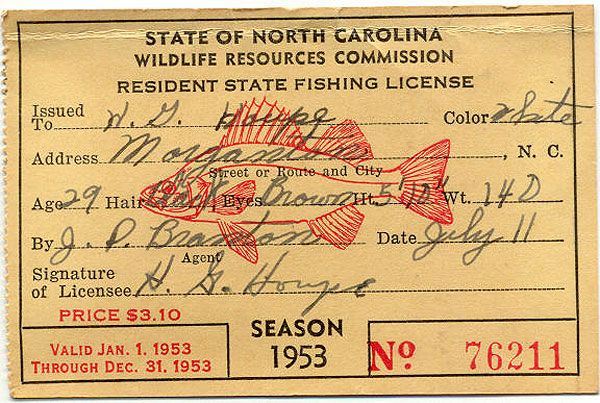 STATE OF NORTH CAROLINA
WILDLIFE RESOURCES COMMISSION
RESIDENT STATE FISHING LICENSE
Issued To H. G. Houpe Color White
Address Morganton, N. C.
Street or Route and City
Age 29 Hair Black Eyes Brown Ht. 5'10" Wt. 140
By J. P. Brandon Date July 11
Agent
Signature of Licensee H. G. Houpe
PRICE $3.10
VALID JAN. 1, 1953
THROUGH DEC. 31, 1953
SEASON
1953
No 76211